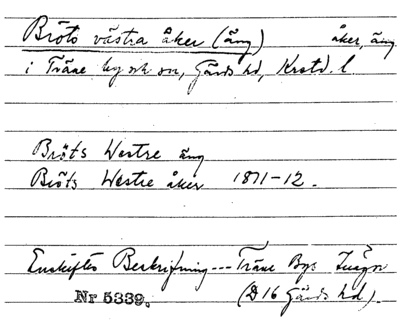 Bröts västra åker (äng) åker, äng
i Träne by och sn, Gärds hd, Krstd. l
Bröts Westre äng
Bröts Westre åker 1811-12.
Enskiftes Beskrifning --- Träne Bys Inägor
Nr 5339. (D 16 Gärds hd).